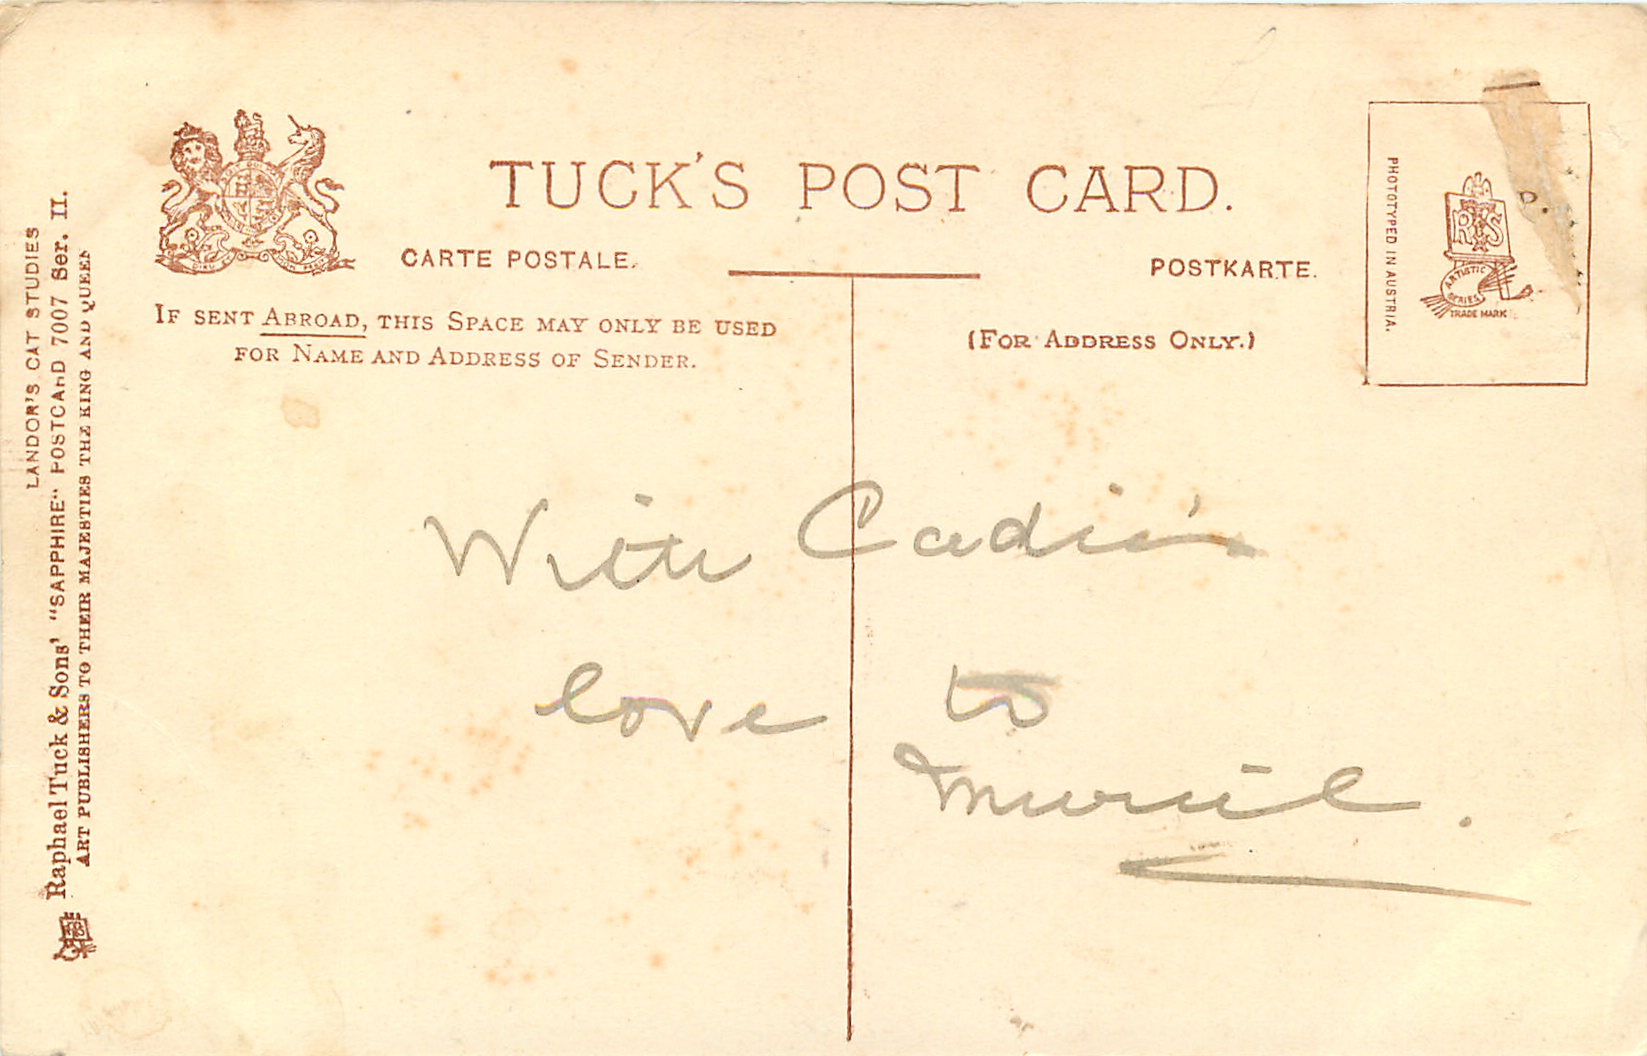 TUCK'S POST CARD.
CARTE POSTALE.
POSTKARTE.
IF SENT ABROAD, THIS SPACE MAY ONLY BE USED
FOR NAME AND ADDRESS OF SENDER.
(FOR ADDRESS ONLY.)
PHOTOTYPED IN AUSTRIA.
RTS
ARTISTIC
SERIES
TRADE MARK
LANDOR'S CAT STUDIES
Raphael Tuck & Sons' "SAPPHIRE" POSTCARD 7007 Ser. II.
ART PUBLISHERS TO THEIR MAJESTIES THE KING AND QUEEN
With Cadie's
love to
Muriel.